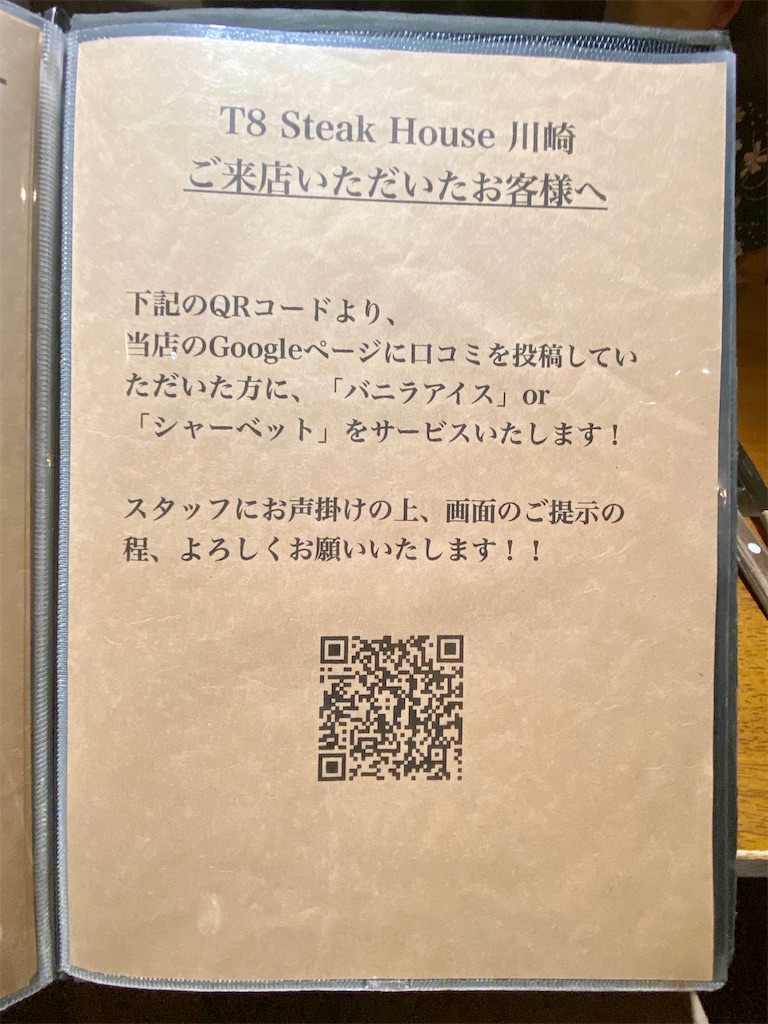 T8 Steak House 川崎
ご来店いただいたお客様へ
下記のQRコードより、
当店のGoogleページに口コミを投稿してい
ただいた方に、「バニラアイス」or
「シャーベット」をサービスいたします！
スタッフにお声掛けの上、画面のご提示の
程、よろしくお願いいたします！！